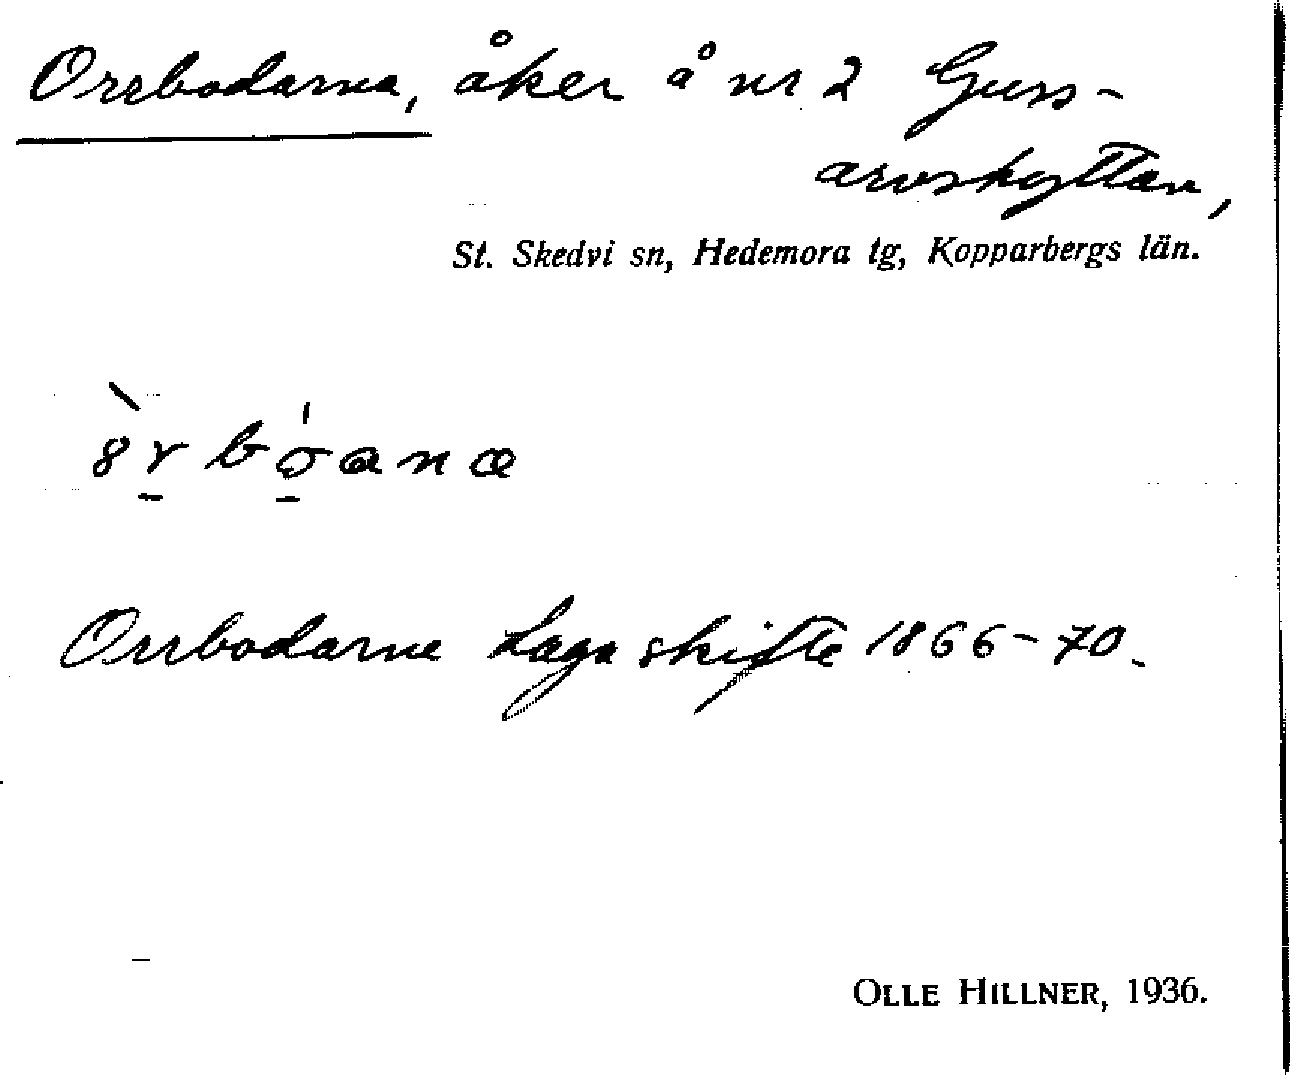 Orrbodarna, åker å nr 2 Guss-
arvshyttan,
St. Skedvi sn, Hedemora tg, Kopparbergs län.
Orrbodarne Laga skifte 1866-70.
OLLE HILLNER, 1936.